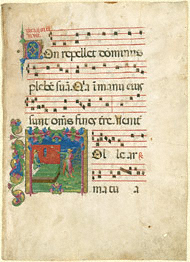 Non repellet dominus
plebē suā. Q̄a ī manu eius
sunt om̄s fines tre. Venit
Tol le ar
ma tu a